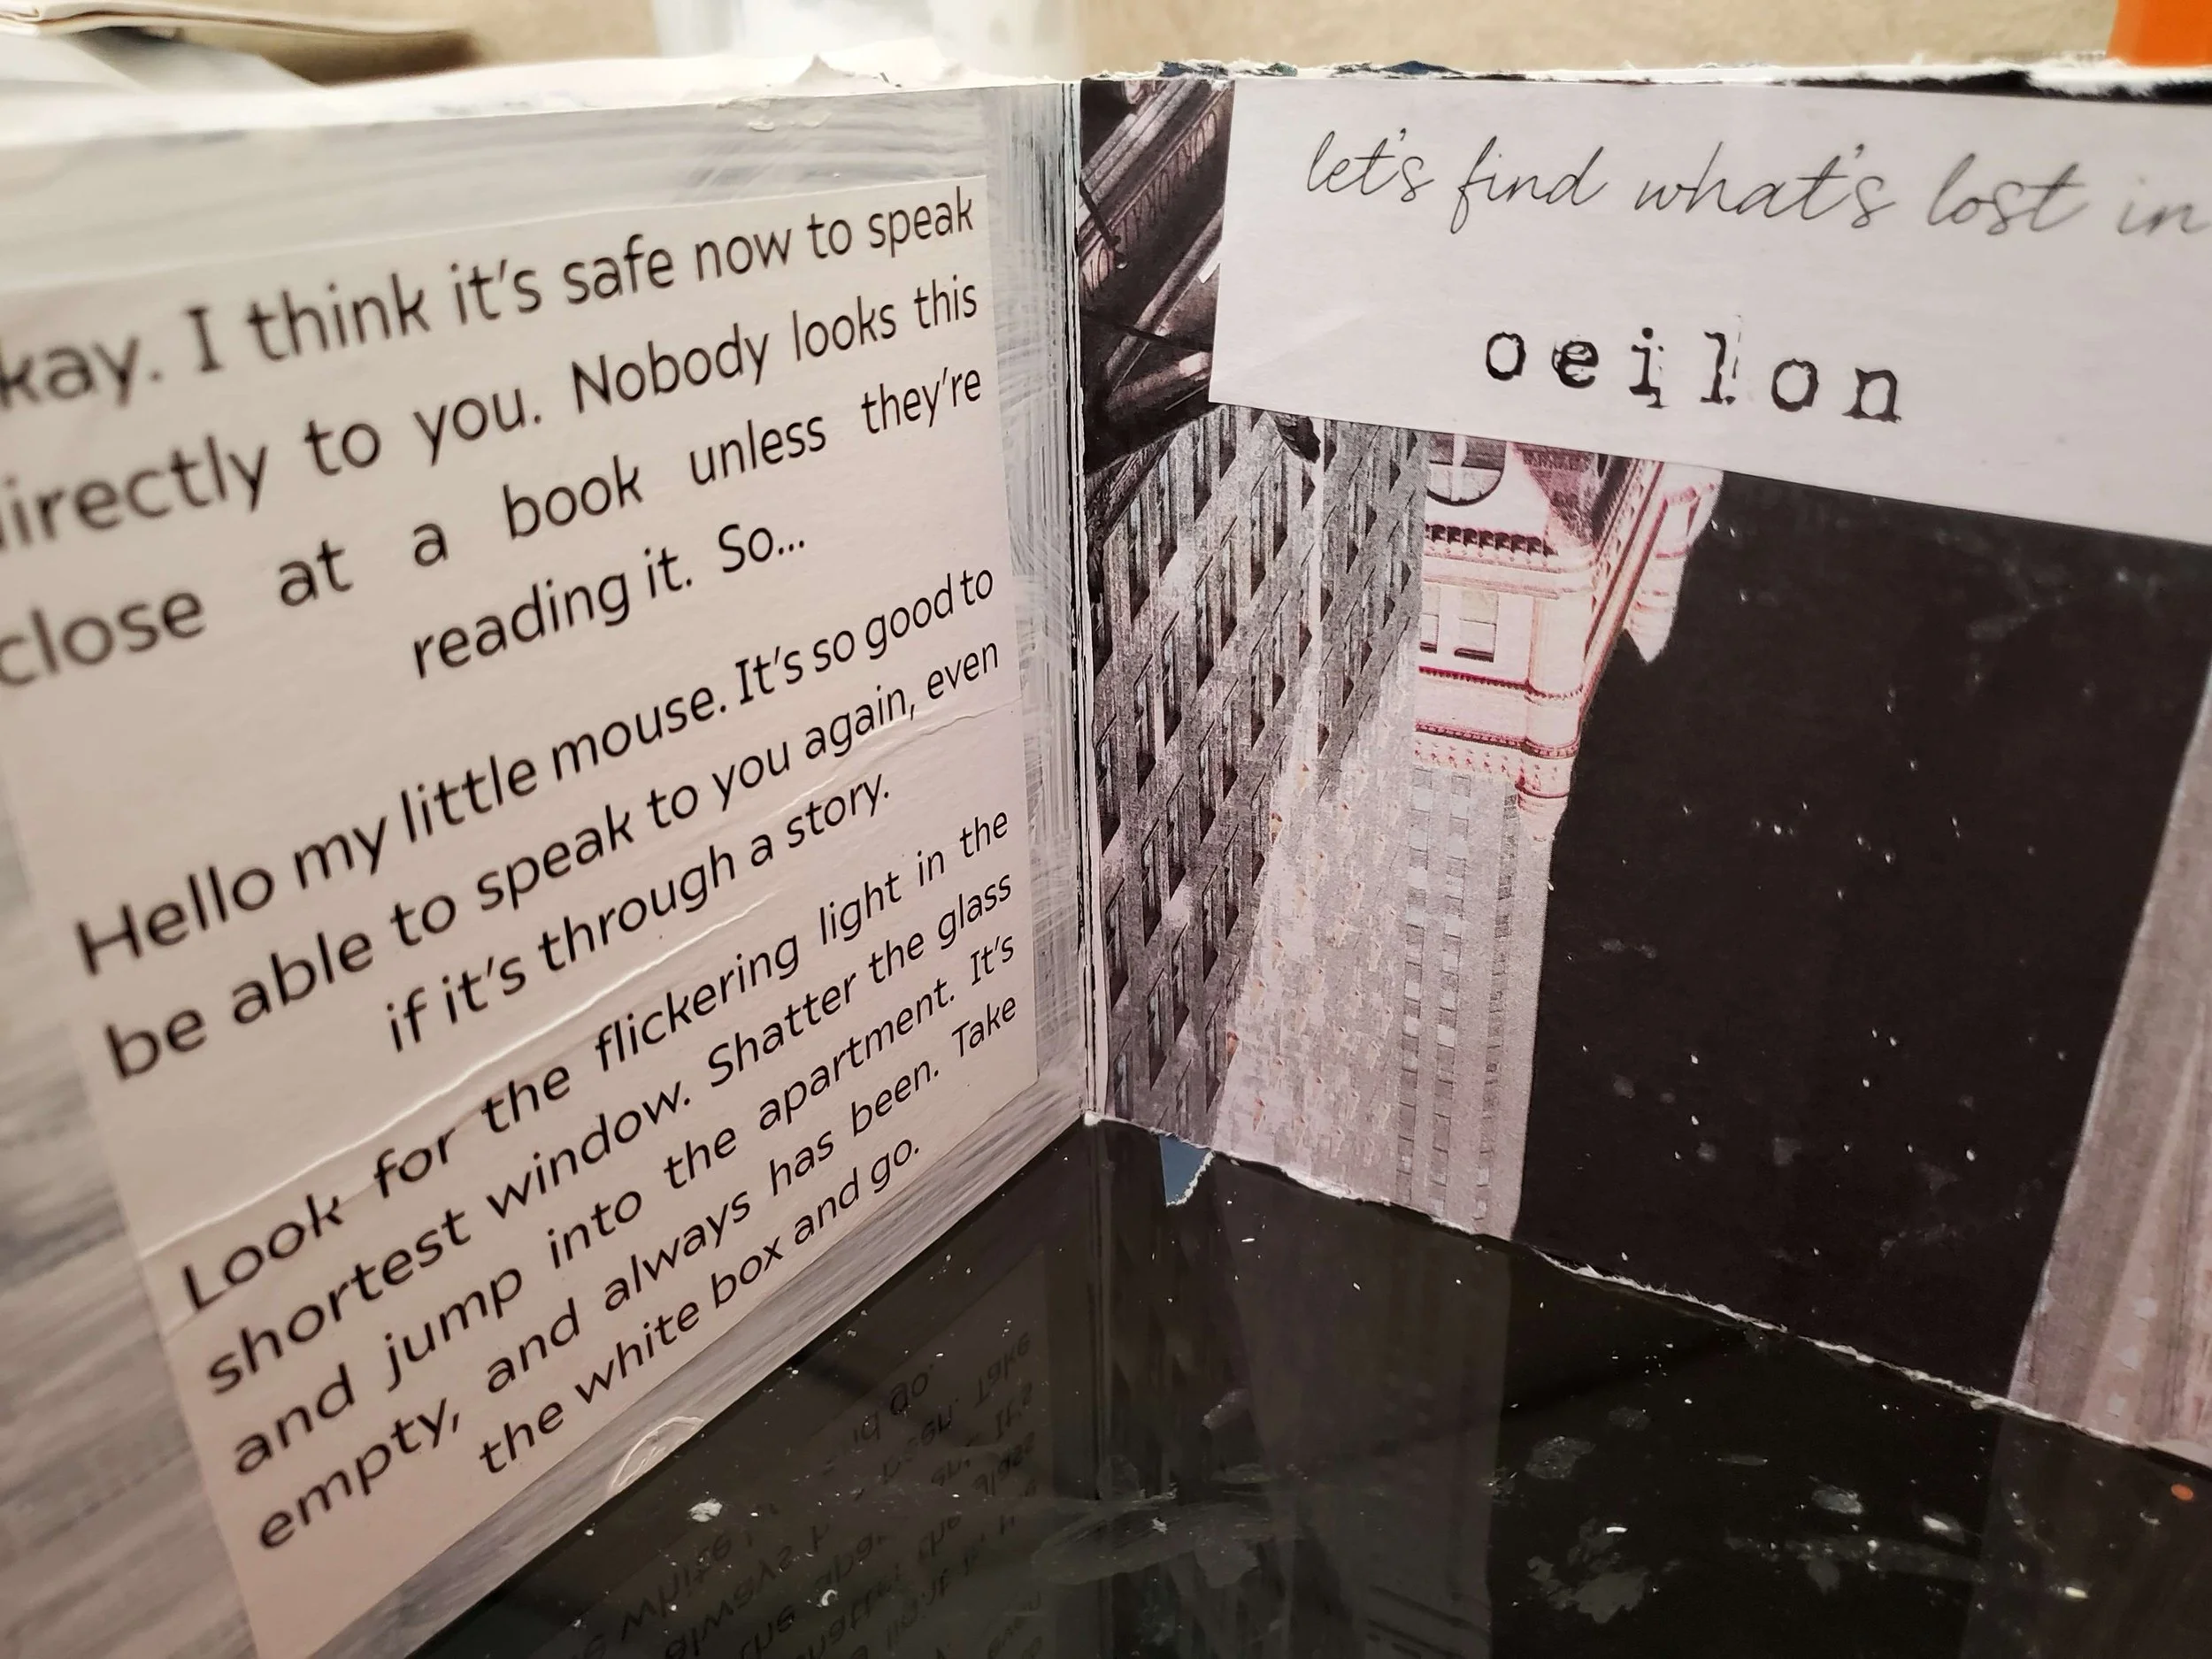 kay. I think it's safe now to speak
irectly to you. Nobody looks this
close at a book unless they're
reading it. So...
Hello my little mouse. It's so good to
be able to speak to you again, even
if it's through a story.
Look for the flickering light in the
shortest window. Shatter the glass
and jump into the apartment. It's
empty, and always has been. Take
the white box and go.
let's find what's lost in
oeilon